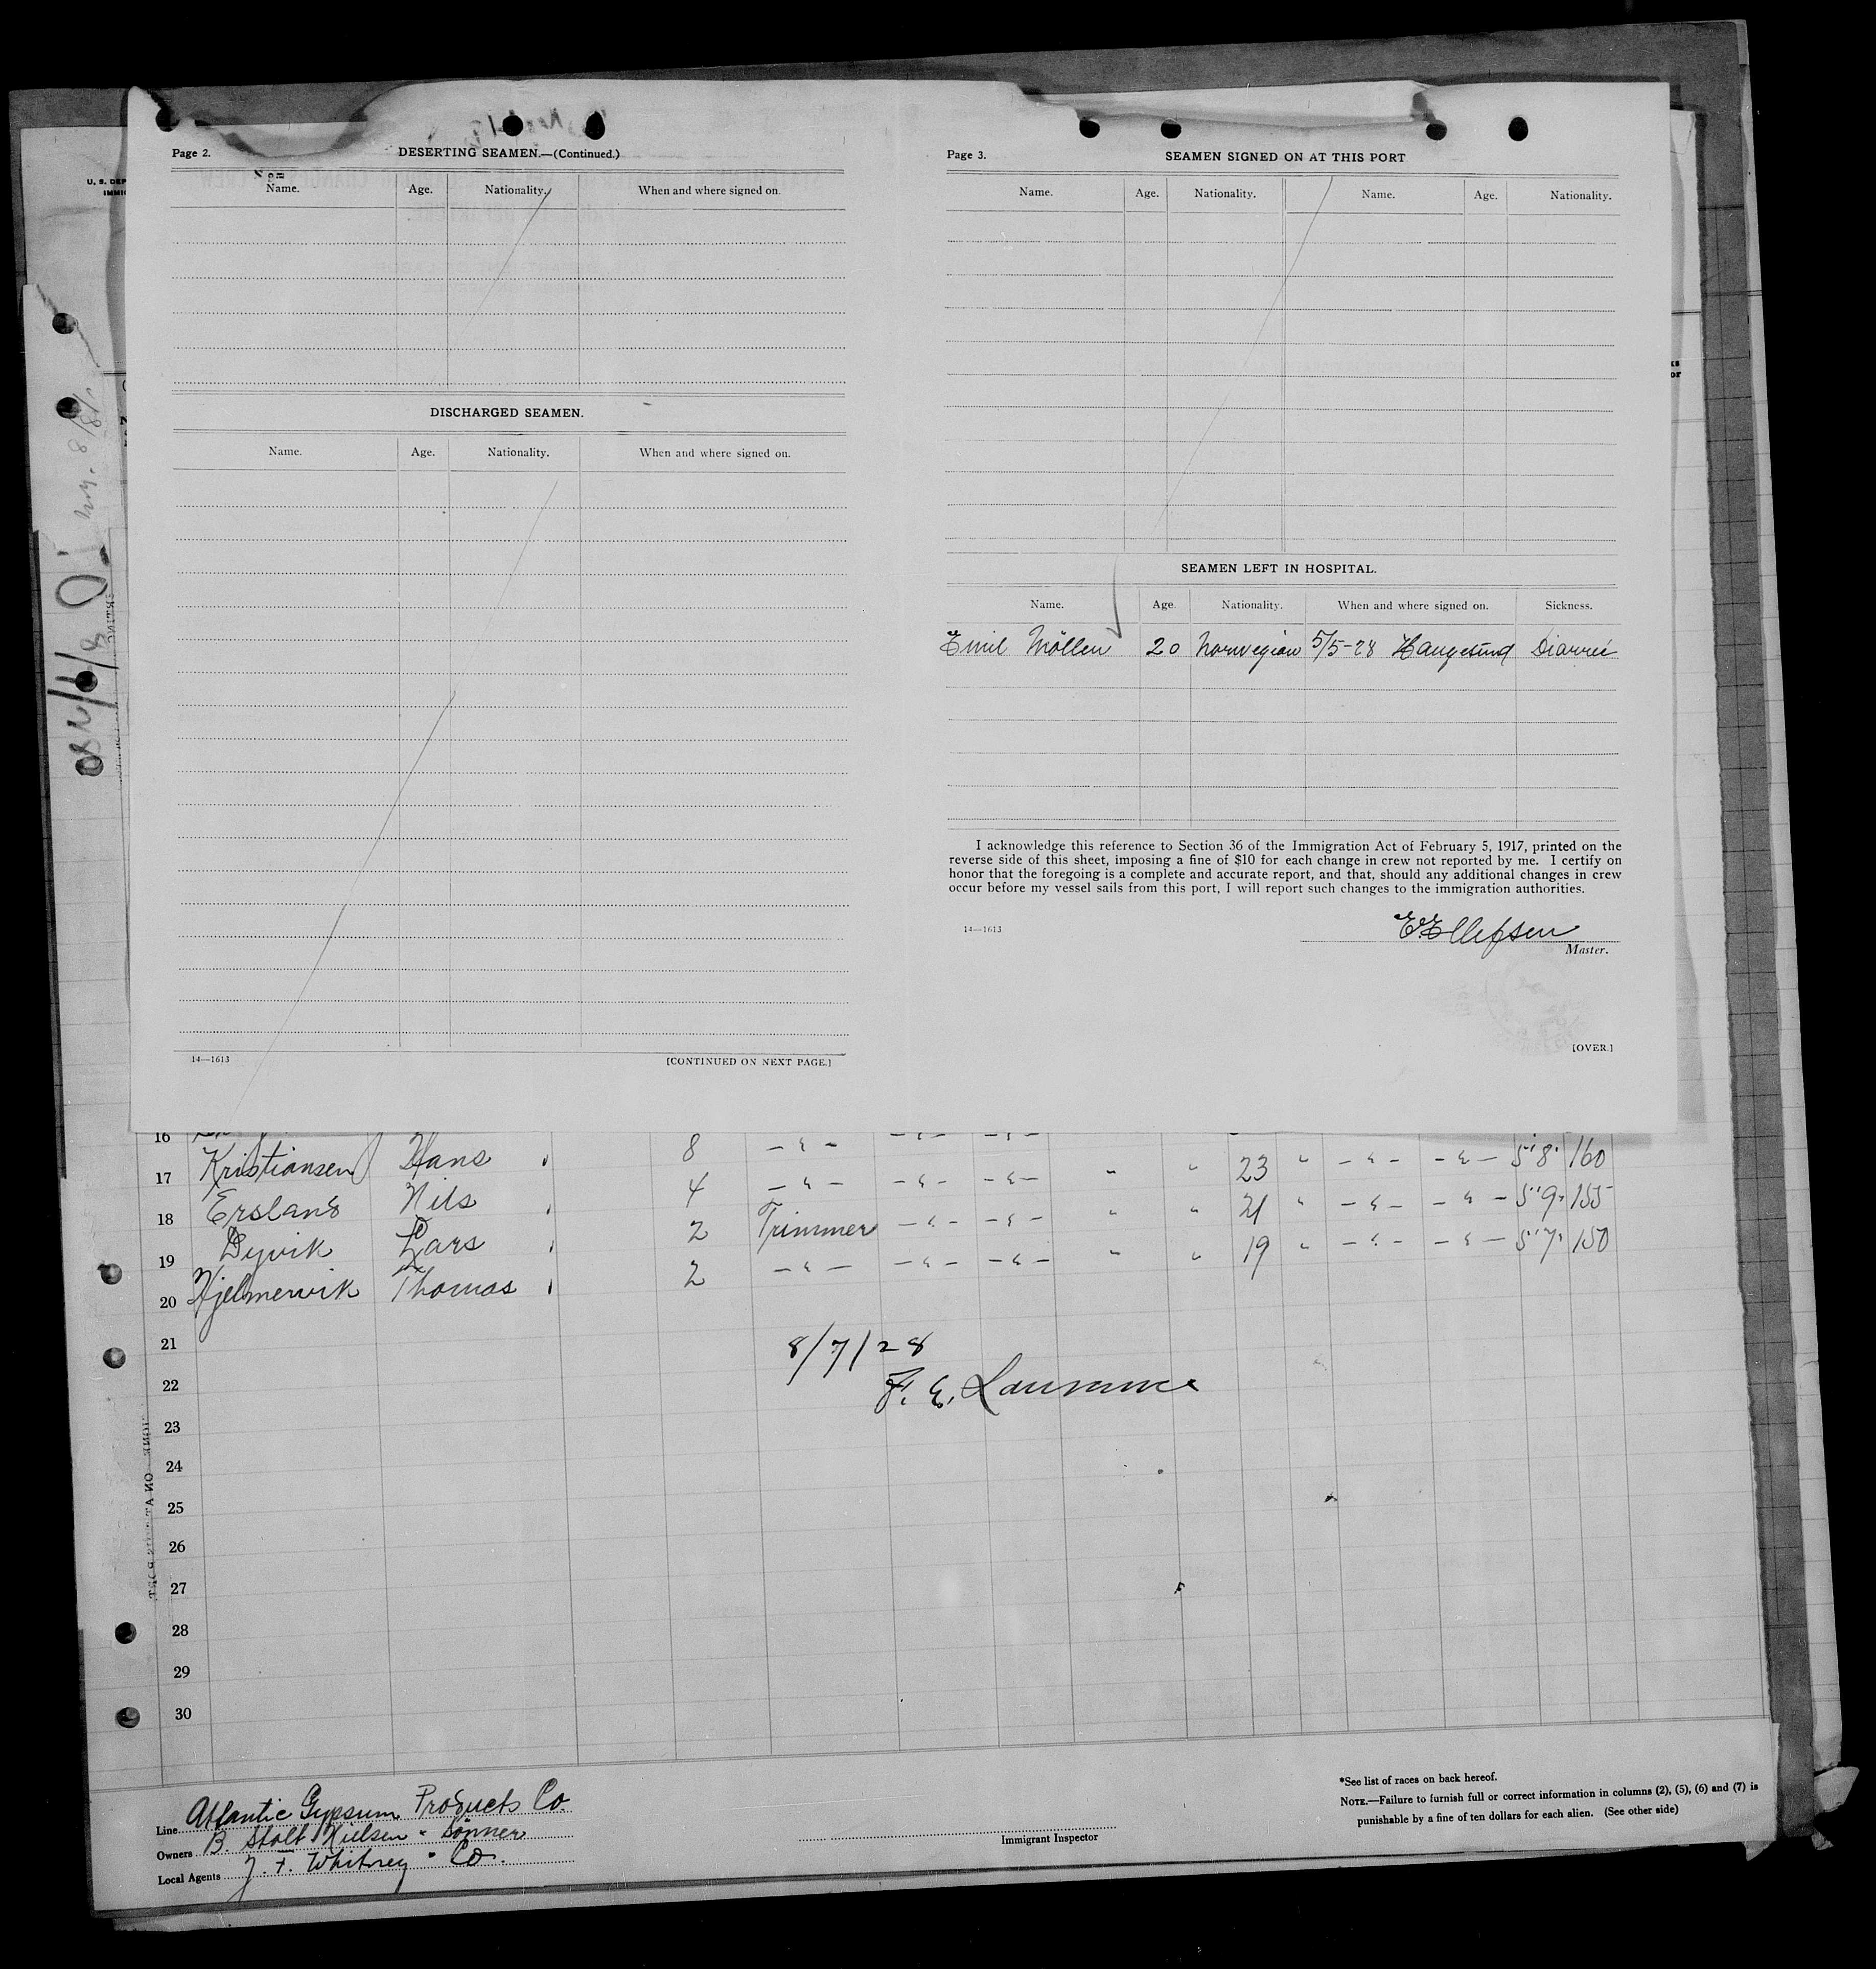 Page 2.
DESERTING SEAMEN.—(Continued.)
Name. Age. Nationality. When and where signed on.
DISCHARGED SEAMEN.
Name. Age. Nationality. When and where signed on.
14—1613
[CONTINUED ON NEXT PAGE.]
Page 3.
SEAMEN SIGNED ON AT THIS PORT
Name. Age. Nationality. Name. Age. Nationality.
SEAMEN LEFT IN HOSPITAL.
Name. Age. Nationality. When and where signed on. Sickness.
Emil Möllen 20 Norwegian 5/5-28 Haugesund Diarreé
I acknowledge this reference to Section 36 of the Immigration Act of February 5, 1917, printed on the
reverse side of this sheet, imposing a fine of $10 for each change in crew not reported by me. I certify on
honor that the foregoing is a complete and accurate report, and that, should any additional changes in crew
occur before my vessel sails from this port, I will report such changes to the immigration authorities.
E. Ellefsen
14—1613
Master.
[OVER.]
U. S. DEP
IMMIG
16
17 Kristiansen Hans 8 — " — — " — — " — " " 23 " — " — — " — 5'8" 160
18 Ersland Nils 4 — " — — " — — " — " " 21 " — " — — " — 5'9" 155
19 Dyvik Lars 2 Trimmer — " — — " — " " 19 " — " — — " — 5'7" 150
20 Hjelmervik Thomas 2 — " — — " — — " —
21
8/7/28
22
F. E. Lawrence
23
24
25
26
27
28
29
30
Line Atlantic Gypsum Products Co.
Owners B. Stolt Nielsen " Sönner
Local Agents J. F. Whitney " Co.
Immigrant Inspector
*See list of races on back hereof.
NOTE.—Failure to furnish full or correct information in columns (2), (5), (6) and (7) is
punishable by a fine of ten dollars for each alien. (See other side)